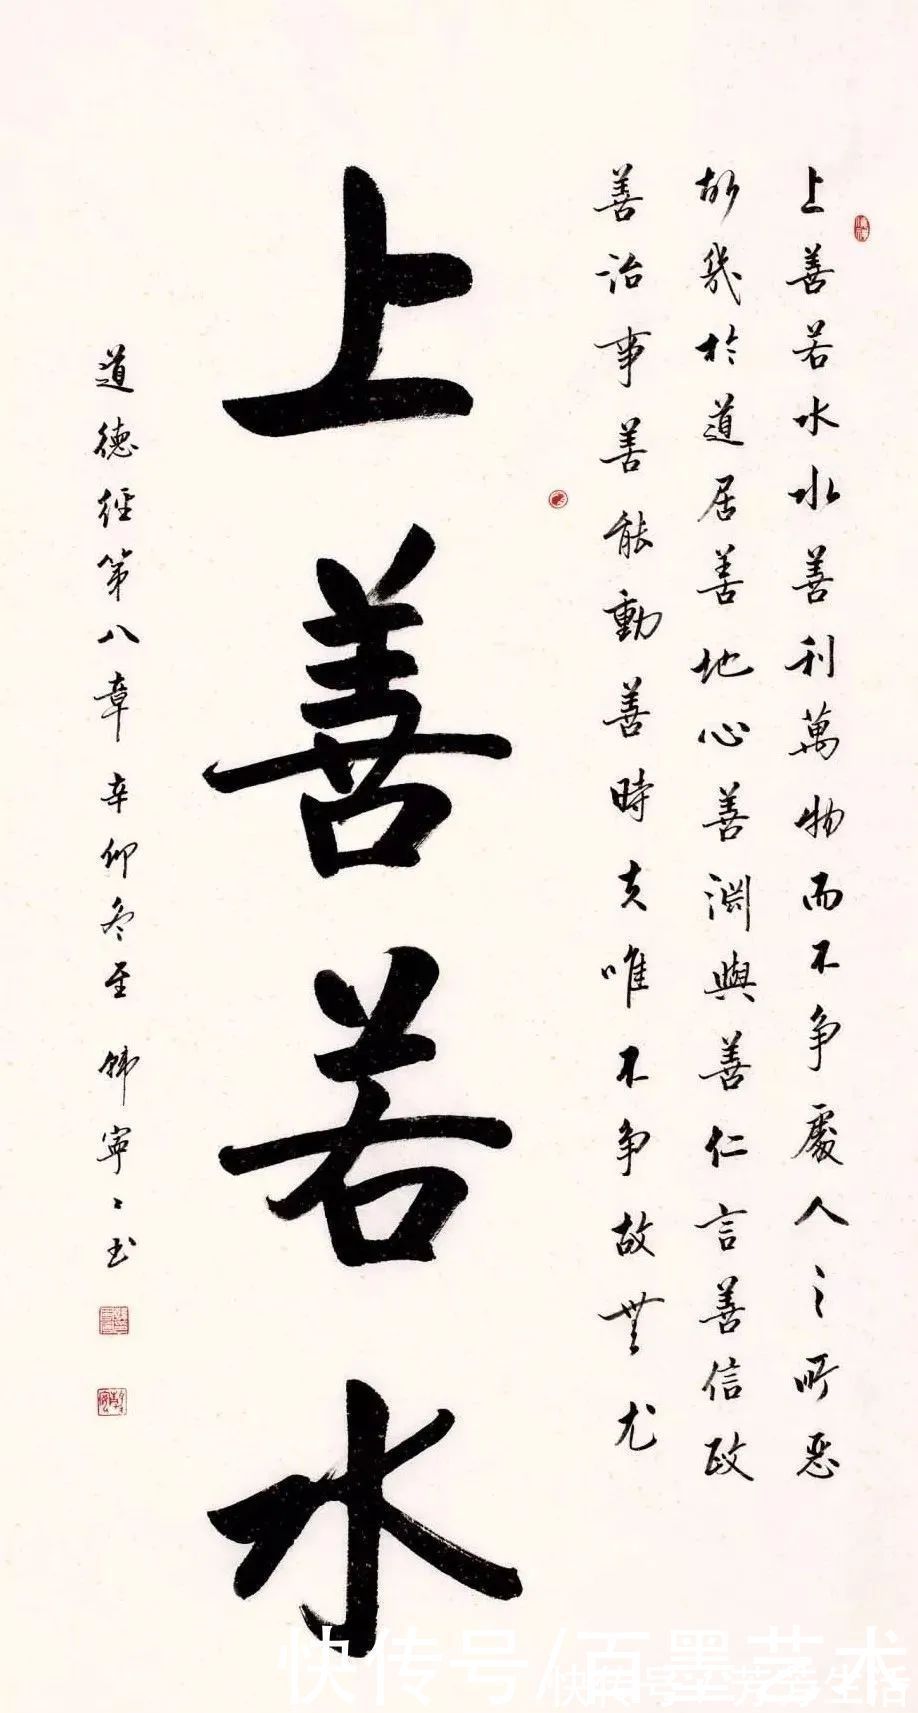 上善若水水善利萬物而不争處人之所惡
故幾於道居善地心善渊與善仁言善信政
善治事善能動善時夫唯不争故無尤
上善若水
道德經第八章 辛卯冬至 韩寧〻书
快传号/百墨艺术